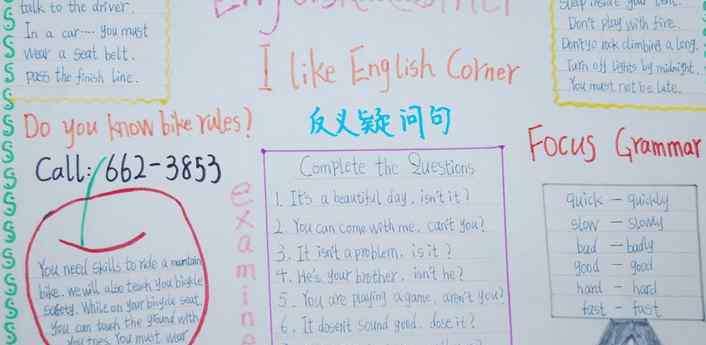 talk to the driver.
In a car---- you must
wear a seat belt.
pass the finish line.
I like English Corner
Don't play with fire.
Turn off lights by midnight.
You must not be late.
Do you know bike rules?
Call: 662-3853
You need skills to ride a mountain
bike. we will also teach you bicycle
safety. While on your bicycle seat,
you can touch the ground with
You must wear
examine
反义疑问句
Complete the Questions
1. It's a beautiful day, isn't it?
2. You can come with me, can't you?
3. It isn't a problem, is it?
4. He's your brother, isn't he?
5. You are playing a game, aren't you?
6. It dosen't sound good, dose it?
Focus Grammar
quick – quickly
slow – slowly
bad – badly
good – good
hard – hard
fast – fast